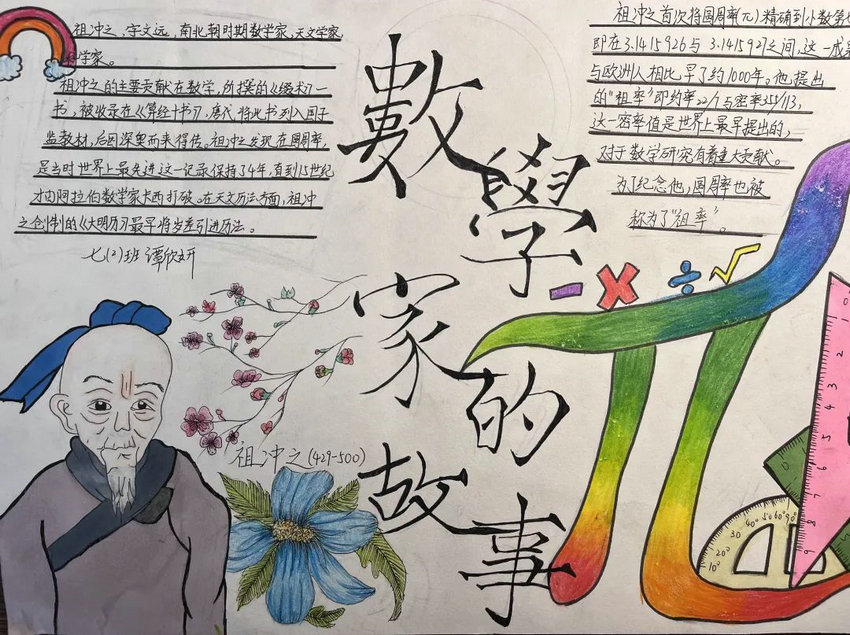 祖冲之，字文远，南北朝时期数学家，天文学家
学家。
祖冲之的主要贡献在数学，所撰的《缀术》一
书，被收录在《算经十书》，唐代将此书列入国子
监教材，后因深奥而未得传。祖冲之发现在圆周率，
是当时世界上最先进这一记录保持了4年，直到15世纪
才由阿拉伯数学家卡西打破。在天文历法方面，祖冲
之创制的《大明历》最早将岁差引进历法。
七(2)班 谭欣妍
祖冲之首次将圆周率(π)精确到小数第
即在3.1415926与3.1415927之间，这一成
与欧洲人相比早了约1000年。他提出
的"祖率"即约率22/7与密率355/113，
这一密率值是世界上最早提出的，
对于数学研究有着重大贡献。
为了纪念他，圆周率也被
称为了"祖率"。
數學家的故事
祖冲之(429-500)
π
- × ÷ √
0
1
2
3
4
5
6
7
8
9
10° 20° 30 40° 50 60° 90°